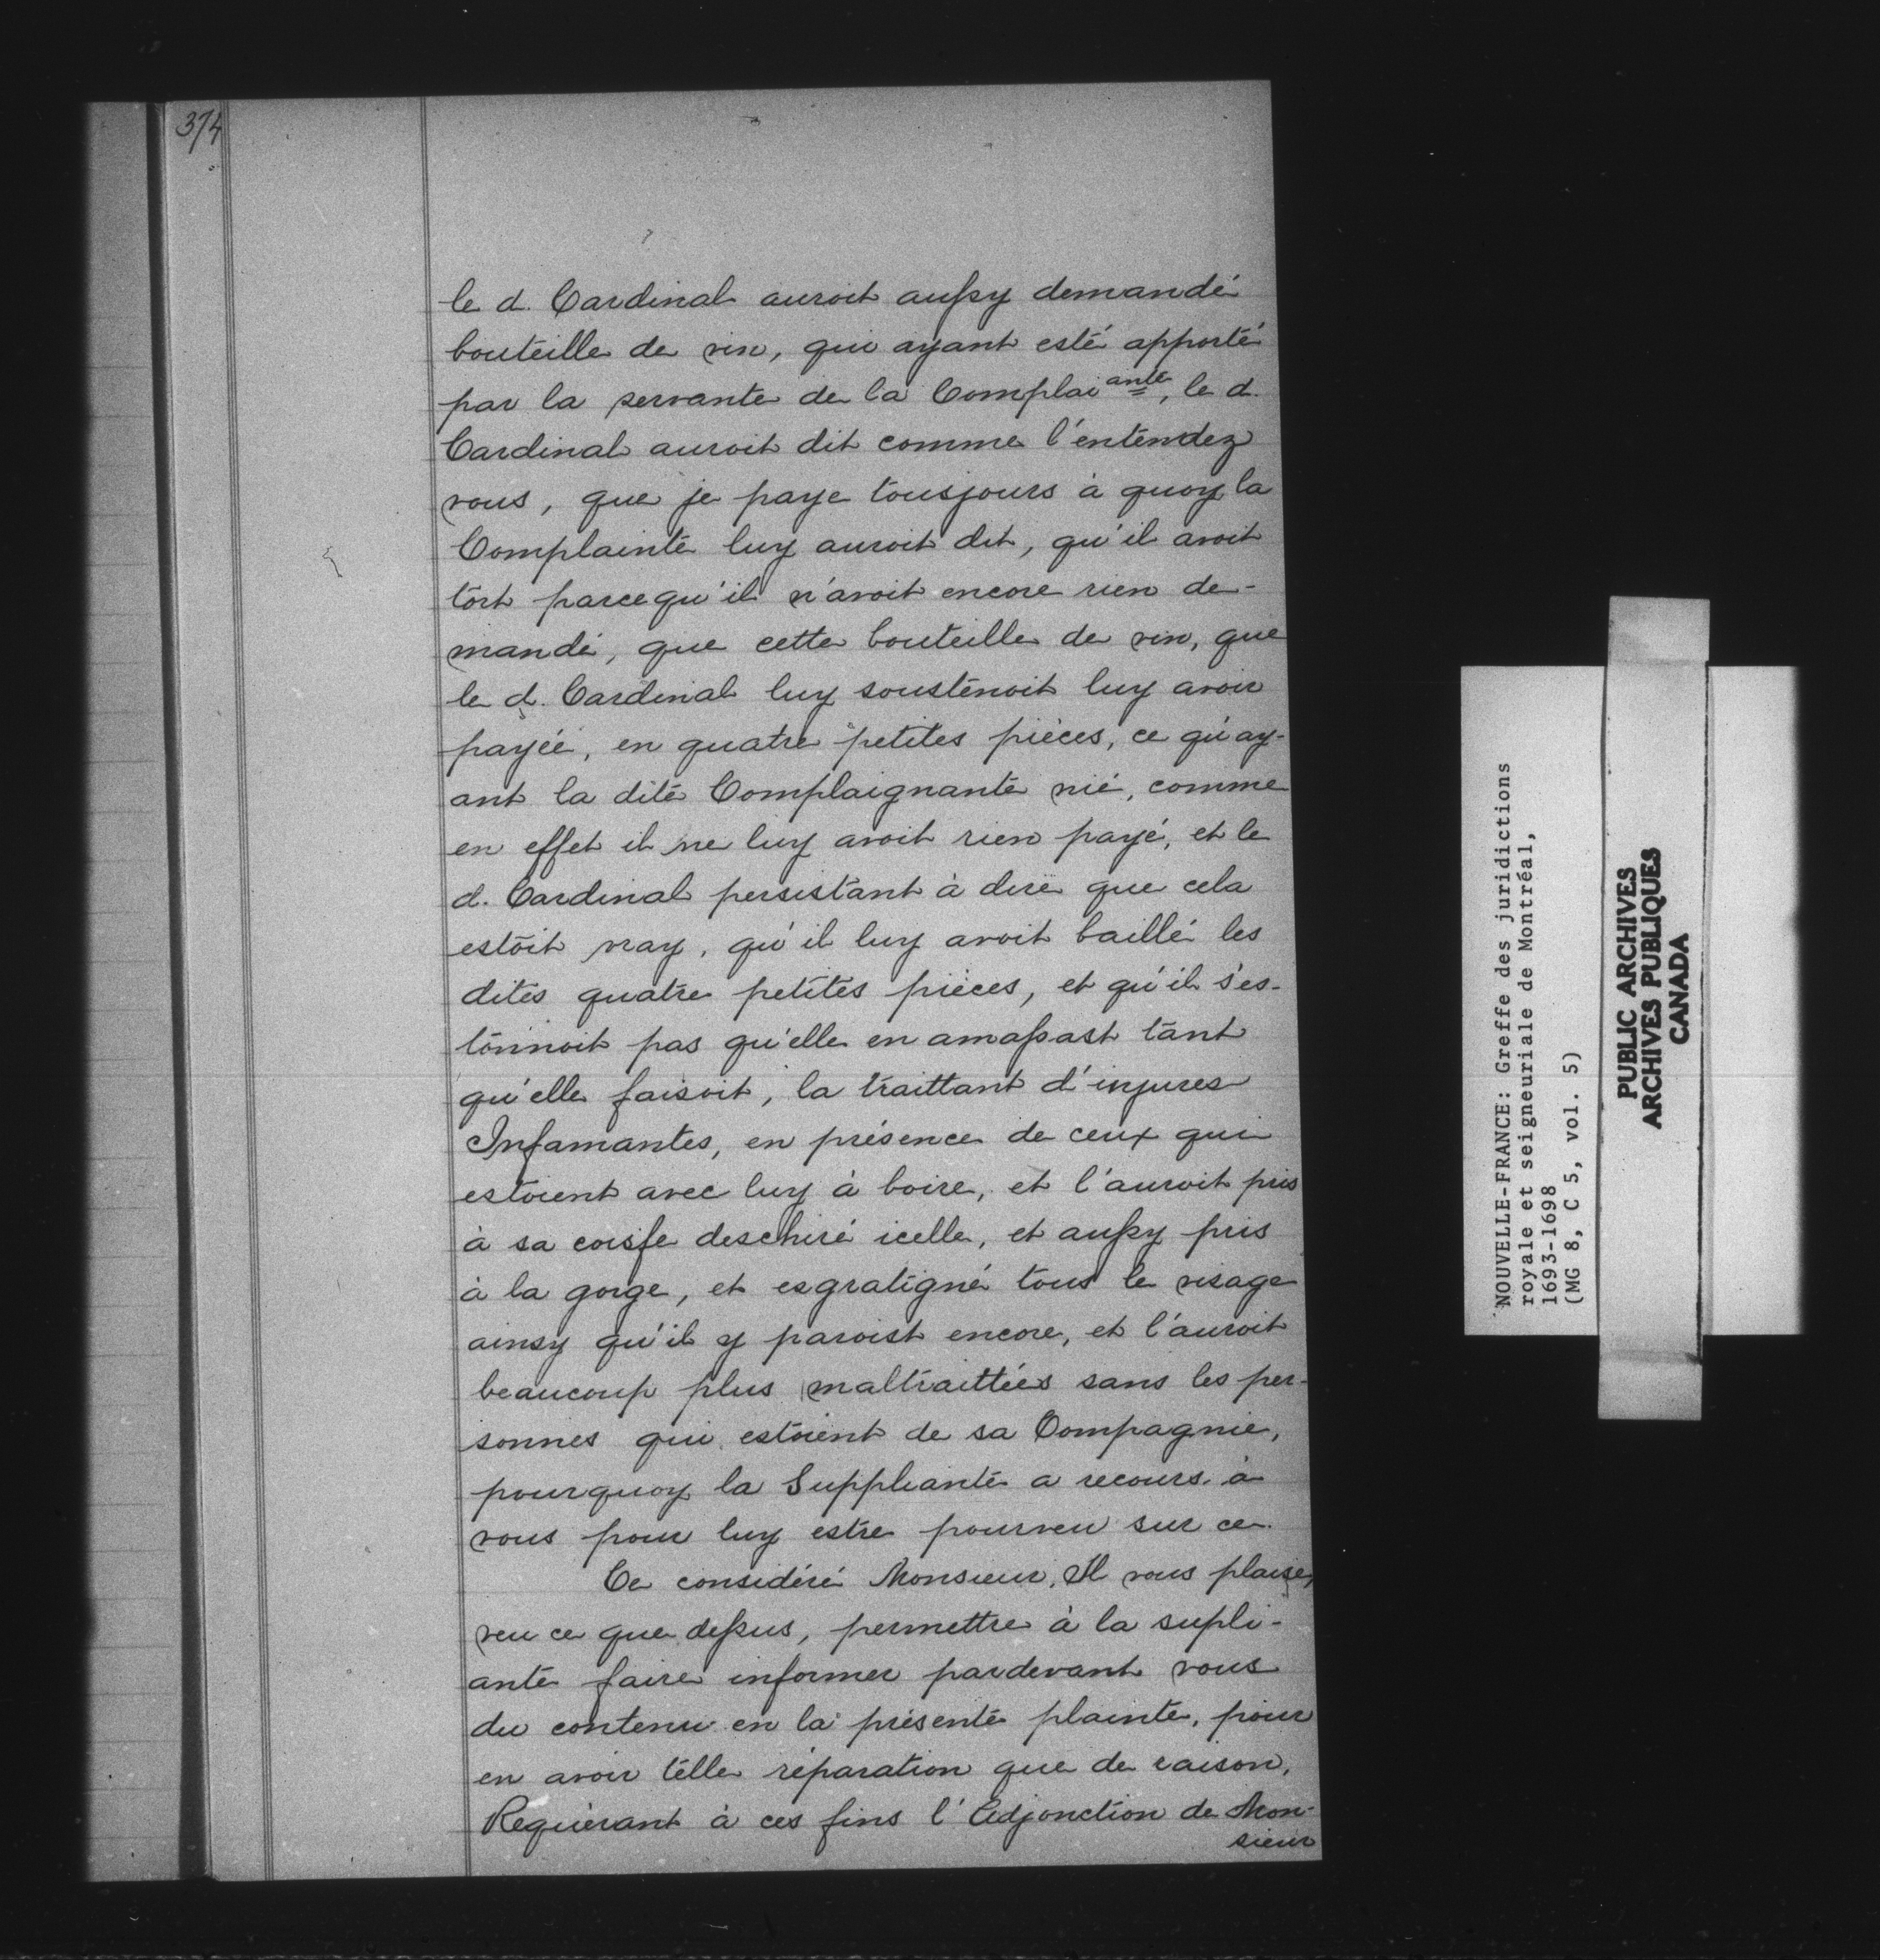 374
le d. Cardinal auroit aussy demandé
bouteille de vin, qui ayant esté apporté
par la servante de la Complaiante, le d.
Cardinal auroit dit comme l'entendez
vous, que je paye tousjours à quoy la
Complainte luy auroit dit, qu'il avoit
tort parcequ'il n'avoit encore rien de-
mandé, que cette bouteille de vin, que
le d. Cardinal luy soustenoit luy avoir
payée, en quatre petites pièces, ce qu'ay-
ant la dite Complaignante nié, comme
en effet il ne luy avoit rien payé, et le
d. Cardinal persistant à dire que cela
estoit vray, qu'il luy avoit baillé les
dites quatre petites pièces, et qu'il s'es-
tonnoit pas qu'elle en amassast tant
qu'elle faisoit, la traittant d'injures
Infamantes, en présence de ceux qui
estoient avec luy à boire, et l'auroit pris
à sa coisfe deschiré icelle, et aussy pris
à la gorge, et esgratigné tous le visage
ainsy qu'il y paroist encore, et l'auroit
beaucoup plus maltraittées sans les per-
sonnes qui estoient de sa Compagnie,
pourquoy la Suppliante a recours à
vous pour luy estre pourveu sur ce.
Ce considéré Monsieur, Il vous plaise,
veu ce que dessus, permettre à la supli-
ante faire informer pardevant vous
du contenu en la présente plainte, pour
en avoir telle réparation que de raison,
Requérant à ces fins l'Adjonction de Mon-
sieur
NOUVELLE-FRANCE: Greffe des juridictions
royale et seigneuriale de Montréal,
1693-1698
(MG 8, C 5, vol. 5)
PUBLIC ARCHIVES
ARCHIVES PUBLIQUES
CANADA